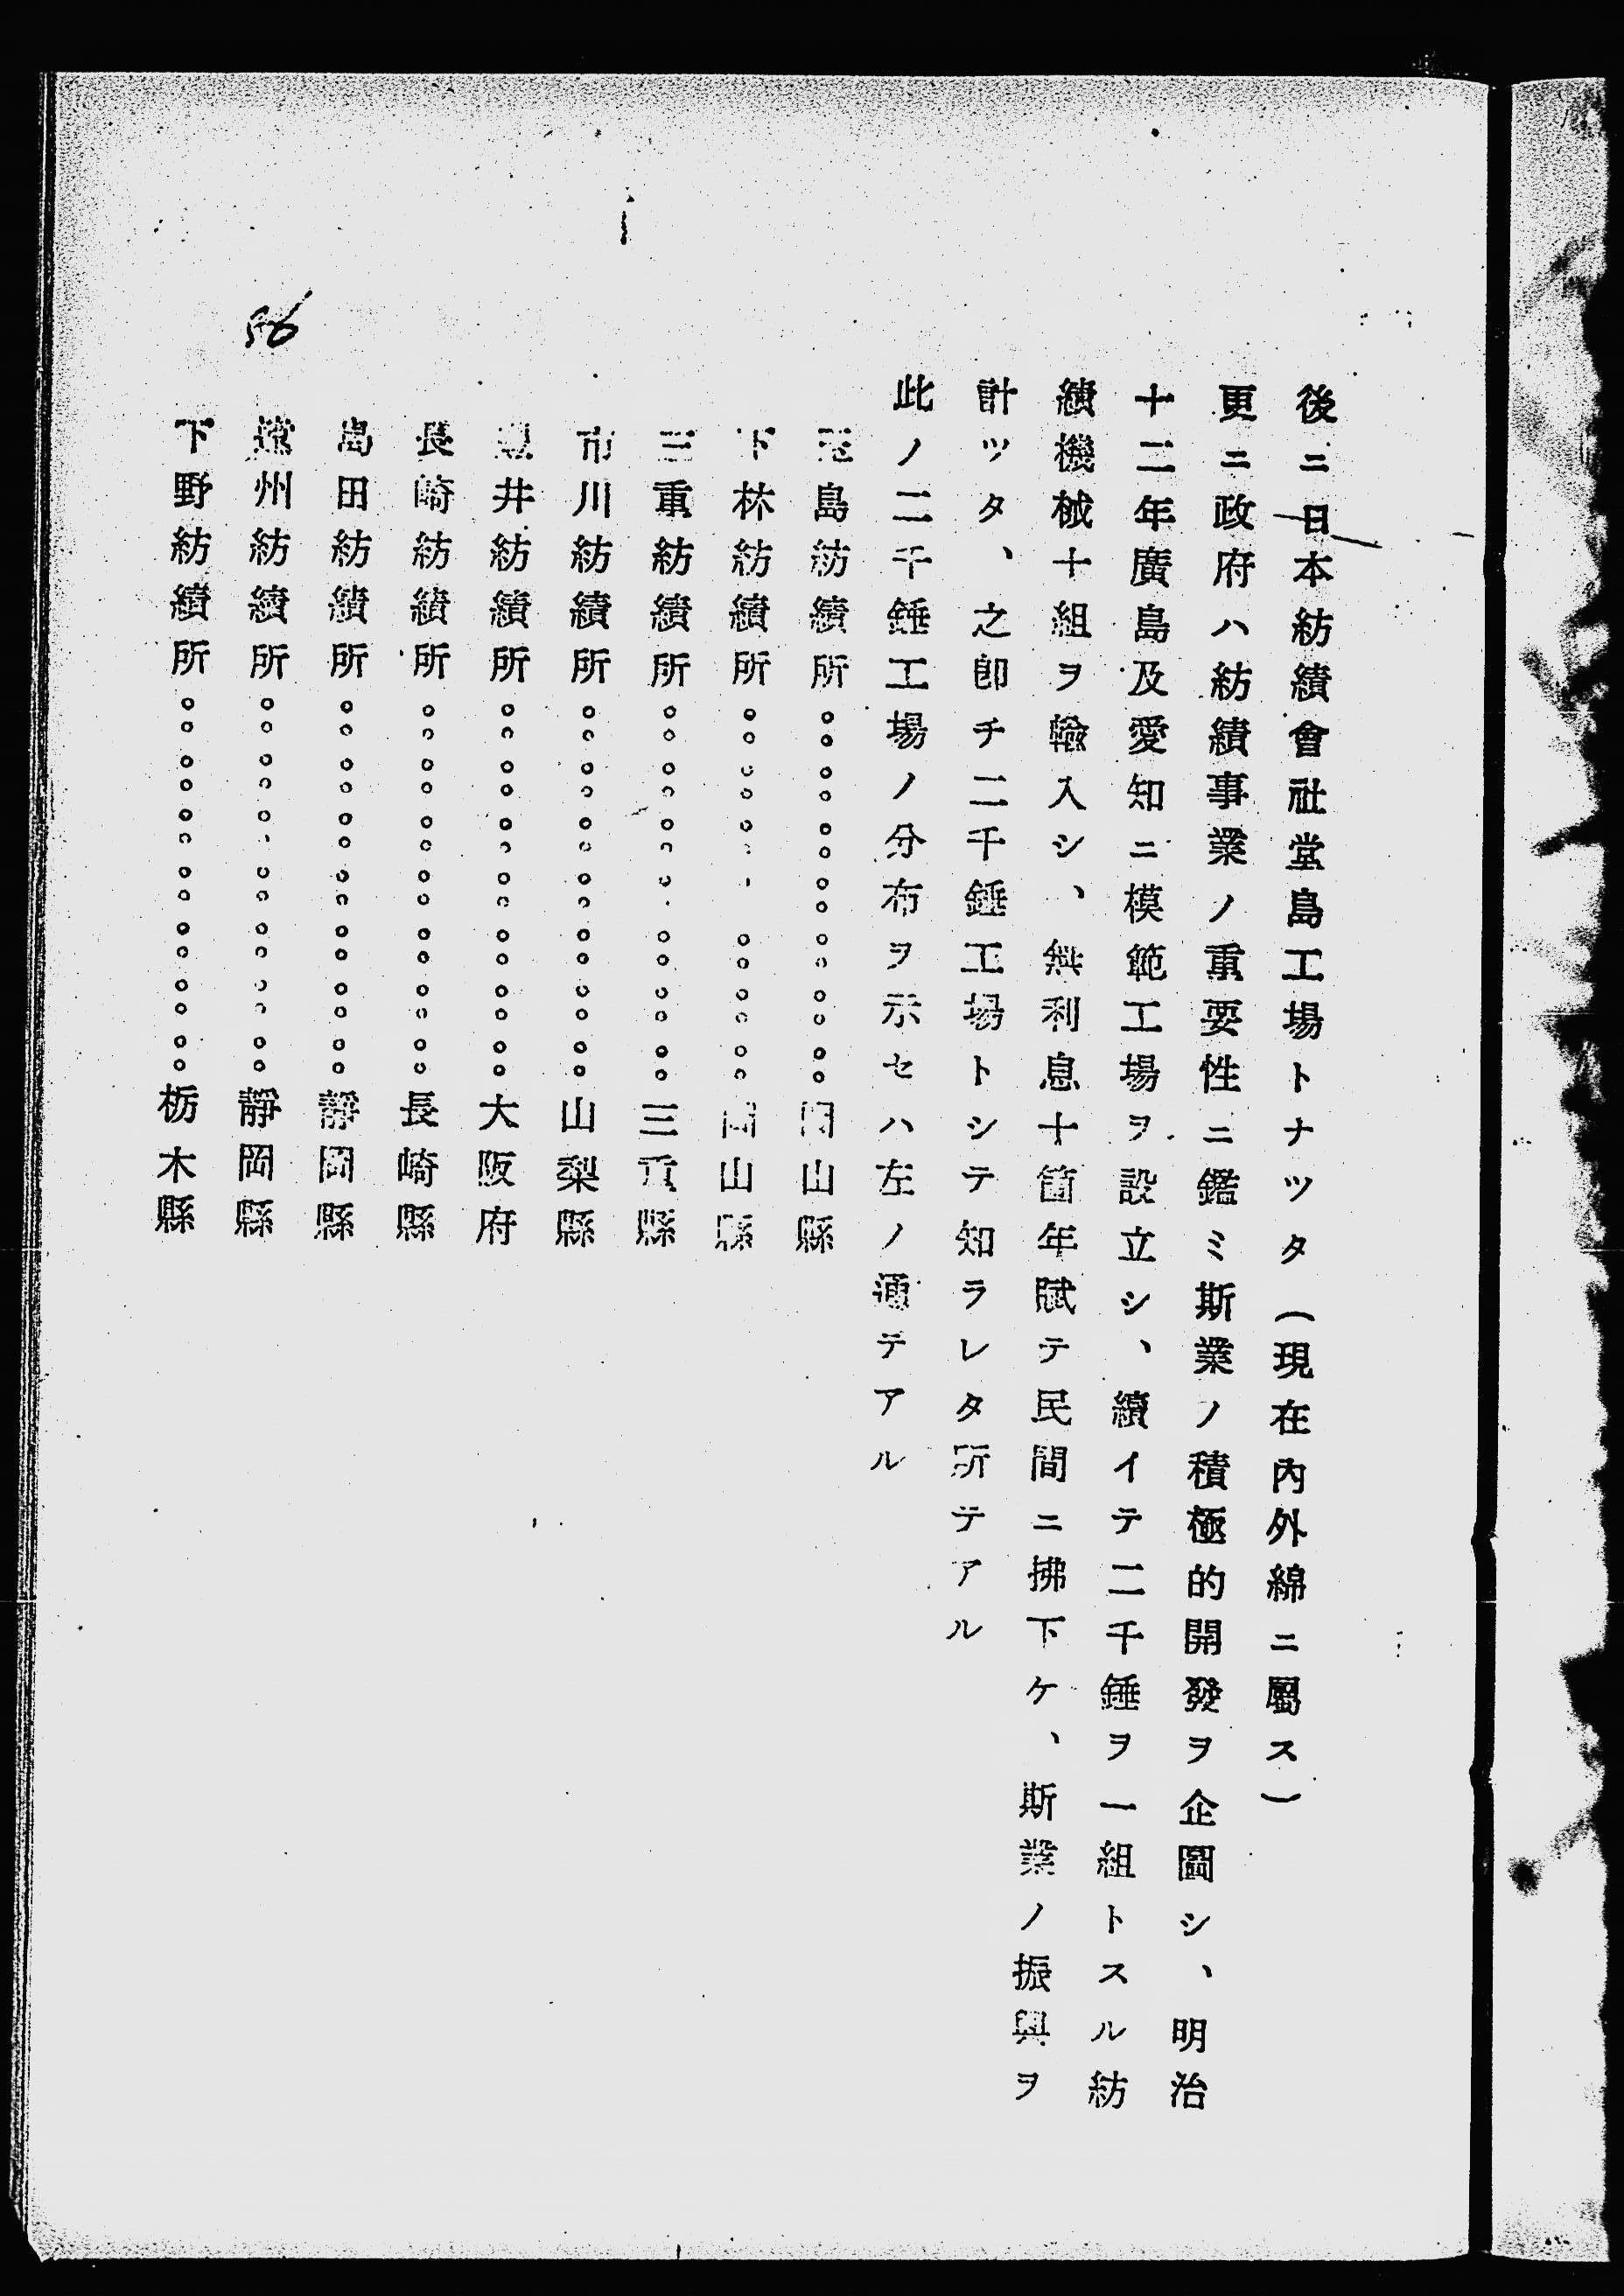 後ニ日本紡績會社堂島工場トナツタ(現在內外綿ニ屬ス)
更ニ政府ハ紡績事業ノ重要性ニ鑑ミ斯業ノ積極的開發ヲ企圖シ、明治
十二年廣島及愛知ニ模範工場ヲ設立シ、續イテ二千錘ヲ一組トスル紡
績機械十組ヲ輸入シ、無利息十箇年賦テ民間ニ拂下ケ、斯業ノ振興ヲ
計ツタ、之卽チ二千錘工場トシテ知ラレタ所テアル
此ノ二千錘工場ノ分布ヲ示セハ左ノ通テアル
島紡績所。。。。。。。。。。。。。。岡山縣
下林紡績所。。。。。。。。。。。。。。岡山縣
三重紡績所。。。。。。。。。。。。。。三重縣
市川紡績所。。。。。。。。。。。。。。山梨縣
井紡績所。。。。。。。。。。。。。。大阪府
長崎紡績所。。。。。。。。。。。。。。長崎縣
島田紡績所。。。。。。。。。。。。。。靜岡縣
遠州紡績所。。。。。。。。。。。。。。靜岡縣
下野紡績所。。。。。。。。。。。。。。栃木縣
56